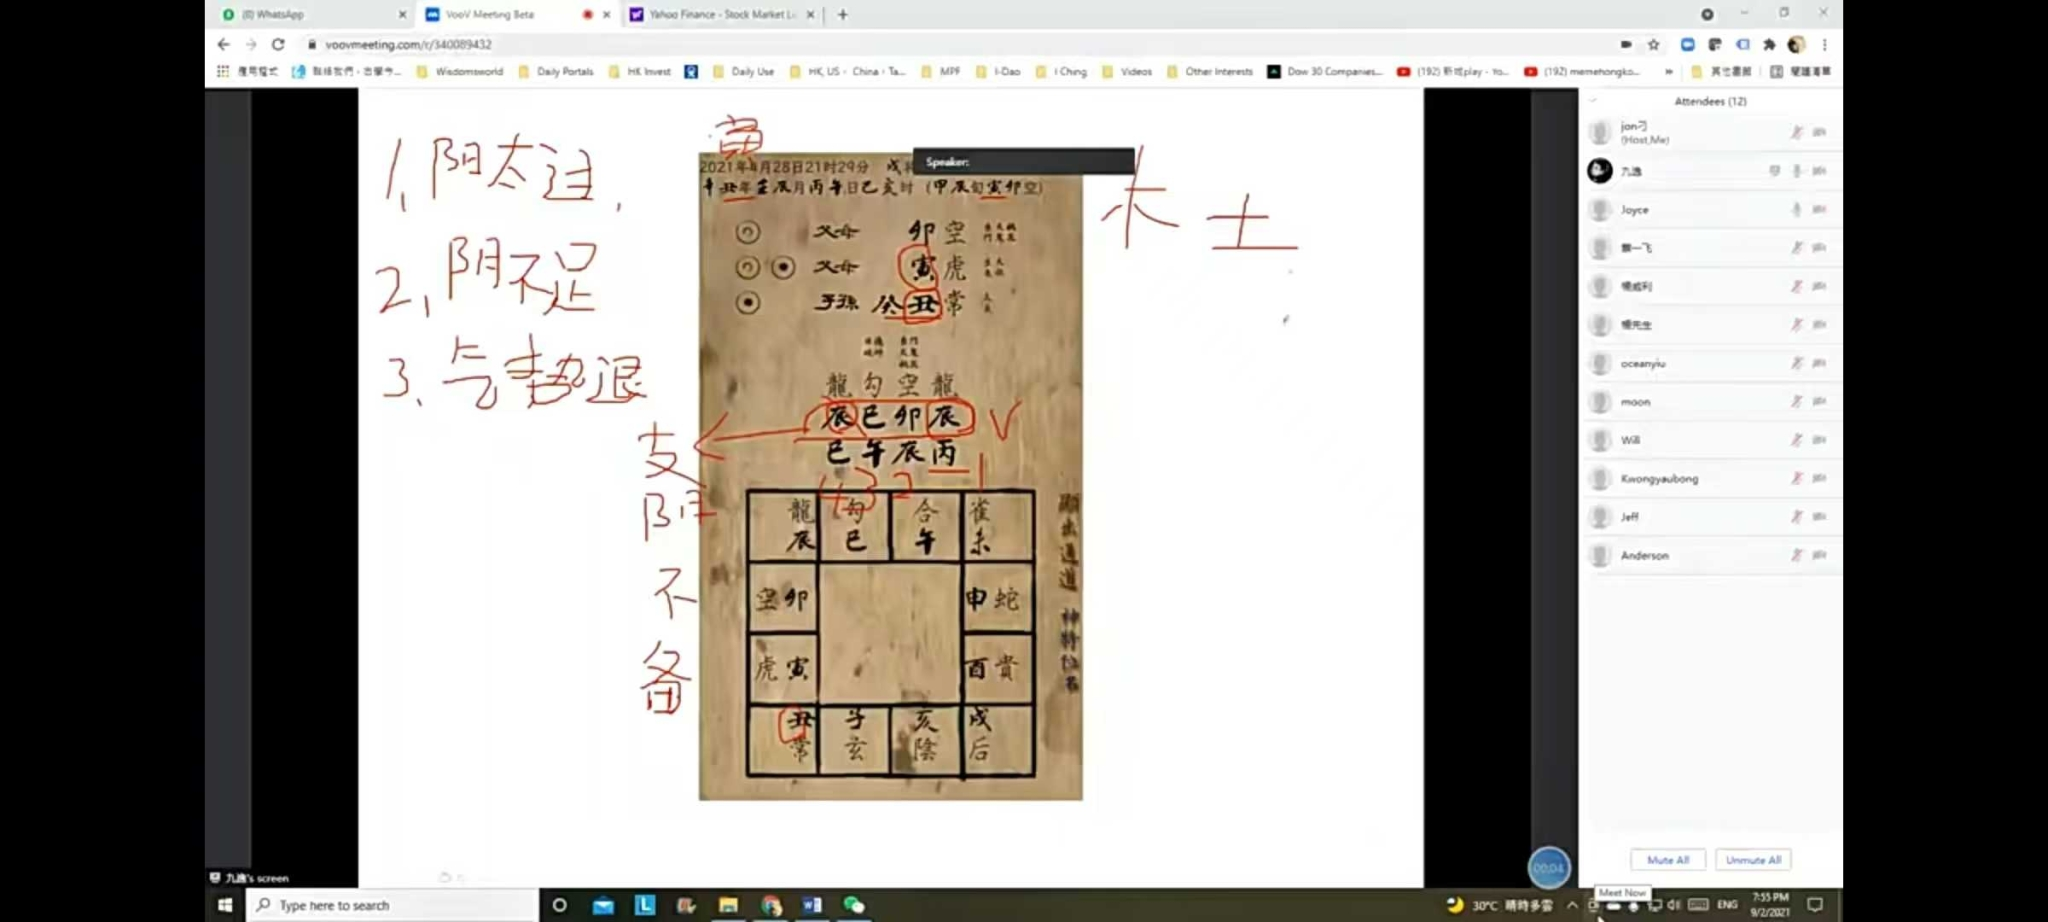 (0) WhatsApp
VooV Meeting Beta
Yahoo Finance - Stock Market Li
voovmeeting.com/r/340089432
應用程式
Wisdomsworld
Daily Portals
HK Invest
Daily Use
HK, US、China、Ta...
MPF
I-Dao
I Ching
Videos
Other Interests
Dow 30 Companies...
(192) 新城play - Yo...
(192) memehongko...
»
其他書籤
閱讀清單
1、阴太过,
2、阴不足
3、气势退
支
阴
不
备
寅
木 土
Speaker:
2021年4月28日21时29分 戌将
辛丑年壬辰月丙午日己亥时 (甲辰旬寅卯空)
父母 卯 空
父母 寅 虎
子孫 癸 丑 常
龍 勾 空 龍
辰 巳 卯 辰 V
巳 午 辰 丙
4 3 2 1
龍 勾 合 雀
辰 巳 午 未
空 卯 申 蛇
虎 寅 酉 貴
丑 子 亥 戌
常 玄 陰 后
Attendees (12)
jon刁
(Host,Me)
九逸
Joyce
楊威利
oceanyiu
moon
Will
Kwongyaubong
Jeff
Anderson
Mute All
Unmute All
00:04
九逸's screen
Meet Now
Type here to search
30°C 晴時多雲
ENG
7:55 PM
9/2/2021